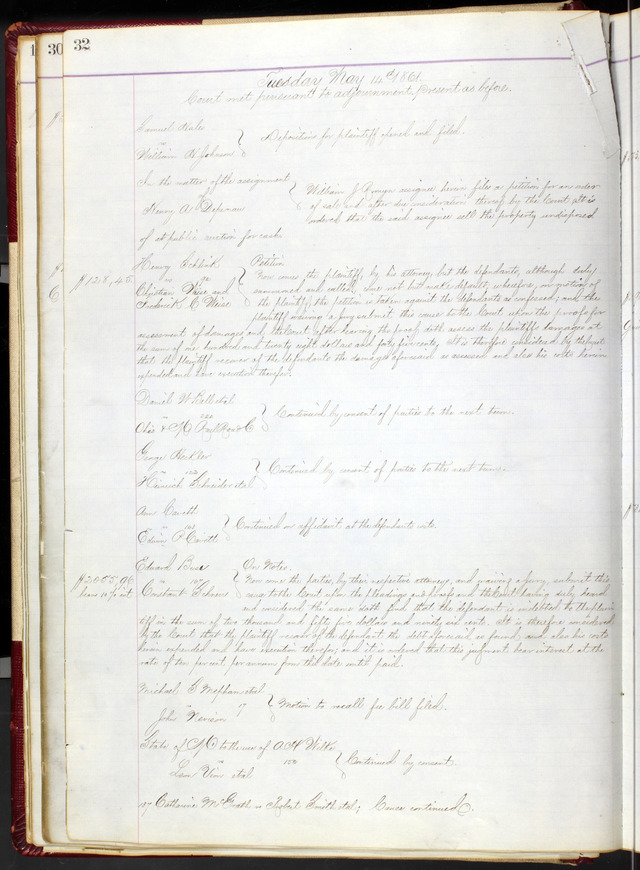 32
30
1
Tuesday May 14th 1861
Court met pursuant to adjournment, present as before.
Samuel Hale
vs
William H Johnson } Depositions for plaintiff opened and filed.
In the matter of the assignment
of
Henry A Depman } William J assignee herein files a petition for an order
of sale and after due consideration thereof by the Court it is
ordered that the said assignee sell the property undisposed
of at public auction for cash.
Henry Petition
$128,45 vs
Christian Weise and
Frederick C Weise } Now comes the plaintiff, by his attorney but the defendants, although duly
summoned and called, come not but make default, wherefore, on motion of
the plaintiff the petition is taken against the defendants as confessed; and the
plaintiff waiving a jury submit this cause to the Court upon the proofs for
assessment of damages and, the Court after hearing the proof doth assess the plaintiffs damages at
the sum of one hundred and twenty eight dollars and forty five cents. It is therefore considered by the Court
that the plaintiff recover of the defendants the damages aforesaid so assessed and also his costs herein
expended and have execution therefor.
Daniel W Bell et al
vs
Ohio & M Rail Road C } Continued by consent of parties to the next term.
George
vs
Heinrich Schneider et al } Continued by consent of parties to the next term.
Ann
vs
Edwin P } Continued on affidavit at the defendants costs.
Edward On Notes.
$2055,96 vs
bears 10 % int Constant } Now come the parties, by their respective attorneys, and waiving a jury, submit this
cause to the Court upon the pleadings and proofs and the Court having duly heard
and considered the same doth find that the defendant is indebted to the plain-
tiff in the sum of two thousand and fifty five dollars and ninety six cents. It is therefore considered
by the Court that the plaintiff recover of the defendant the debt aforesaid so found, and also his costs
herein expended and have execution therefor; and it is ordered that this judgment bear interest at the
rate of ten per cent per annum from this date until paid.
Michael G Mepham et al
vs
John } Motion to recall fee bill filed.
State of M to the use of A H
vs
et al } Continued by consent.
Catharine McGrath vs Robert Smith et al; Cause continued.